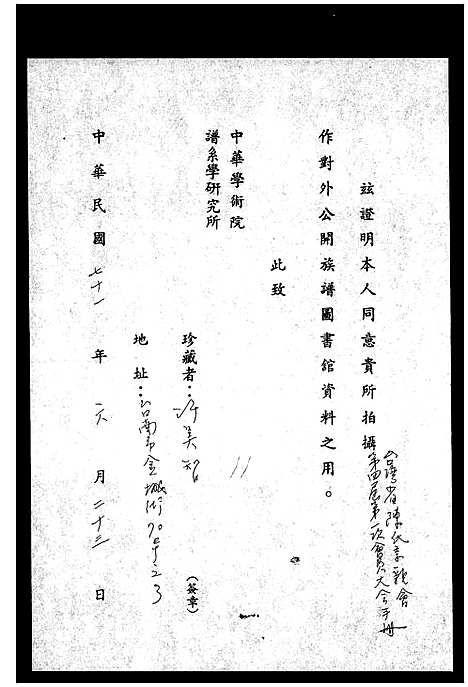 茲證明本人同意貴所拍攝
台灣省陳氏宗親會
第四屆第一次會員大會手冊
作對外公開族譜圖書館資料之用。
此致
中華學術院
譜系學研究所
珍藏者:許美智
(簽章)
地址:台南市金城街70
中華民國七十一年六月二十三日